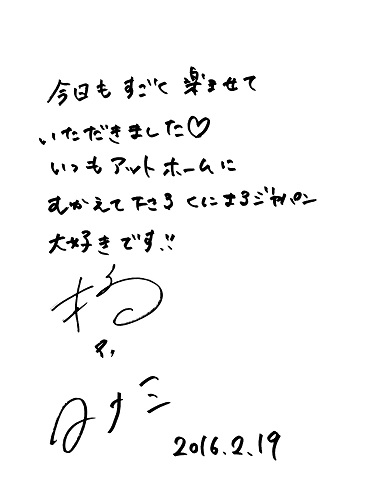 今日もすごく楽ませて
いただきました♡
いつもアットホームに
むかえて下さる くにまるジャパン
大好きです!!
2016.2.19